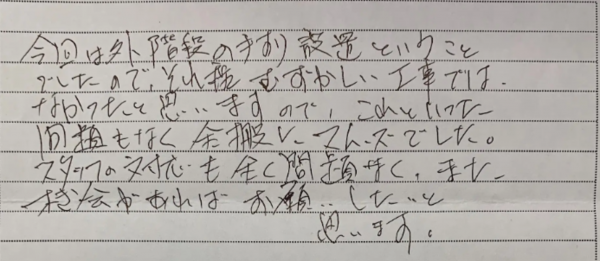 今回は外階段の手すり設置ということ
でしたので、それ程むずかしい工事では
なかったと思いますので、これといった
問題もなく全般にスムーズでした。
スタッフの対応も全く問題なく、また
機会があればお願いしたいと
思います。